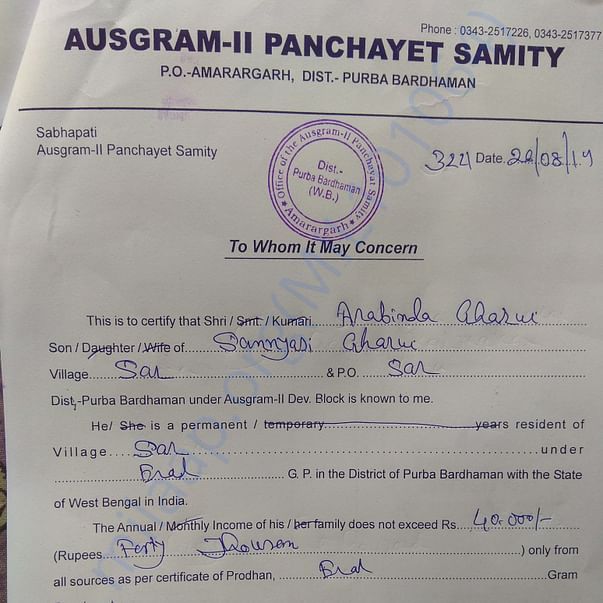 Phone : 0343-2517226, 0343-2517377
AUSGRAM-II PANCHAYET SAMITY
P.O.-AMARARGARH, DIST.- PURBA BARDHAMAN
Sabhapati
Ausgram-II Panchayet Samity
Office of the Ausgram-II Panchayat Samity
Dist.-
Purba Bardhaman
(W.B.)
★ Amarargarh ★
Date. /08/19
To Whom It May Concern
This is to certify that Shri / Smt / Kumari. Arabinda Gharui
Son / Daughter / Wife of. Sannyasi Gharui
Village. Sar & P.O. Sar
Dist,-Purba Bardhaman under Ausgram-II Dev. Block is known to me.
He/ She is a permanent / temporary years resident of
Village. Sar under
Eral G. P. in the District of Purba Bardhaman with the State
of West Bengal in India.
The Annual / Monthly Income of his / her family does not exceed Rs. 40.000/-
(Rupees Forty ) only from
all sources as per certificate of Prodhan, Eral Gram